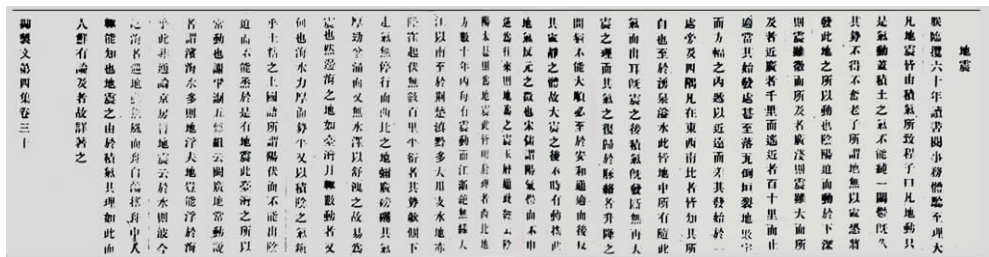 地震
朕臨攬六十年讀書閱事務體驗至理大
凡地震皆由積氣所致程子曰凡地動只
是氣動蓋積土之氣不能純一閟鬱既久
其勢不得不奮老子所謂地無以寧恐將
發此地之所以動也陰陽迫而動於下深
則震雖微而所及者廣淺則震雖大而所
及者近廣者千里而遙近者百十里而止
適當其始發處甚至落瓦倒垣裂地敗宇
而方幅之內遞以近遠而差其發始於一
處旁及四隅凡在東西南北者皆知其所
自也至於湧泉溢水此皆地中所有隨此
氣而出耳既震之後積氣既發斷無再大
震之理而其氣之復歸於脈絡者升降之
間猶不能大順必至於安和通適而後反
其寧靜之體故大震之後不時有動搖此
地氣反元之徵也宋儒謂陽氣鬱而不申
逆為往來則地為之震玉曆通政經云陰
陽太甚則為地震此皆明於理者西北地
方數十年內每有震動而江浙絕無緣大
江以南至於荊楚滇黔多大川支水地亦
隆洼起伏無數百里平衍者其勢欹側下
走氣無停行而西北之地彌廣磅礴其氣
厚勁坌湧而又無水澤以舒洩之故易為
震也然邊海之地如臺灣月輒數動者又
何也海水力厚而勢平又以積陰之氣鎮
乎土精之上國語所謂陽伏而不能出陰
迫而不能烝於是有地震此臺灣之所以
常動也謝肇淛五雜組云閩廣地常動說
者謂濱海水多則地浮夫地豈能浮於海
乎此非通論京房言地震云於水則波今
泛海者遇地動無風而舟自蕩搖舟中人
輒能知也地震之由於積氣其理如此而
人鮮有論及者故詳著之
御製文第四集卷三十